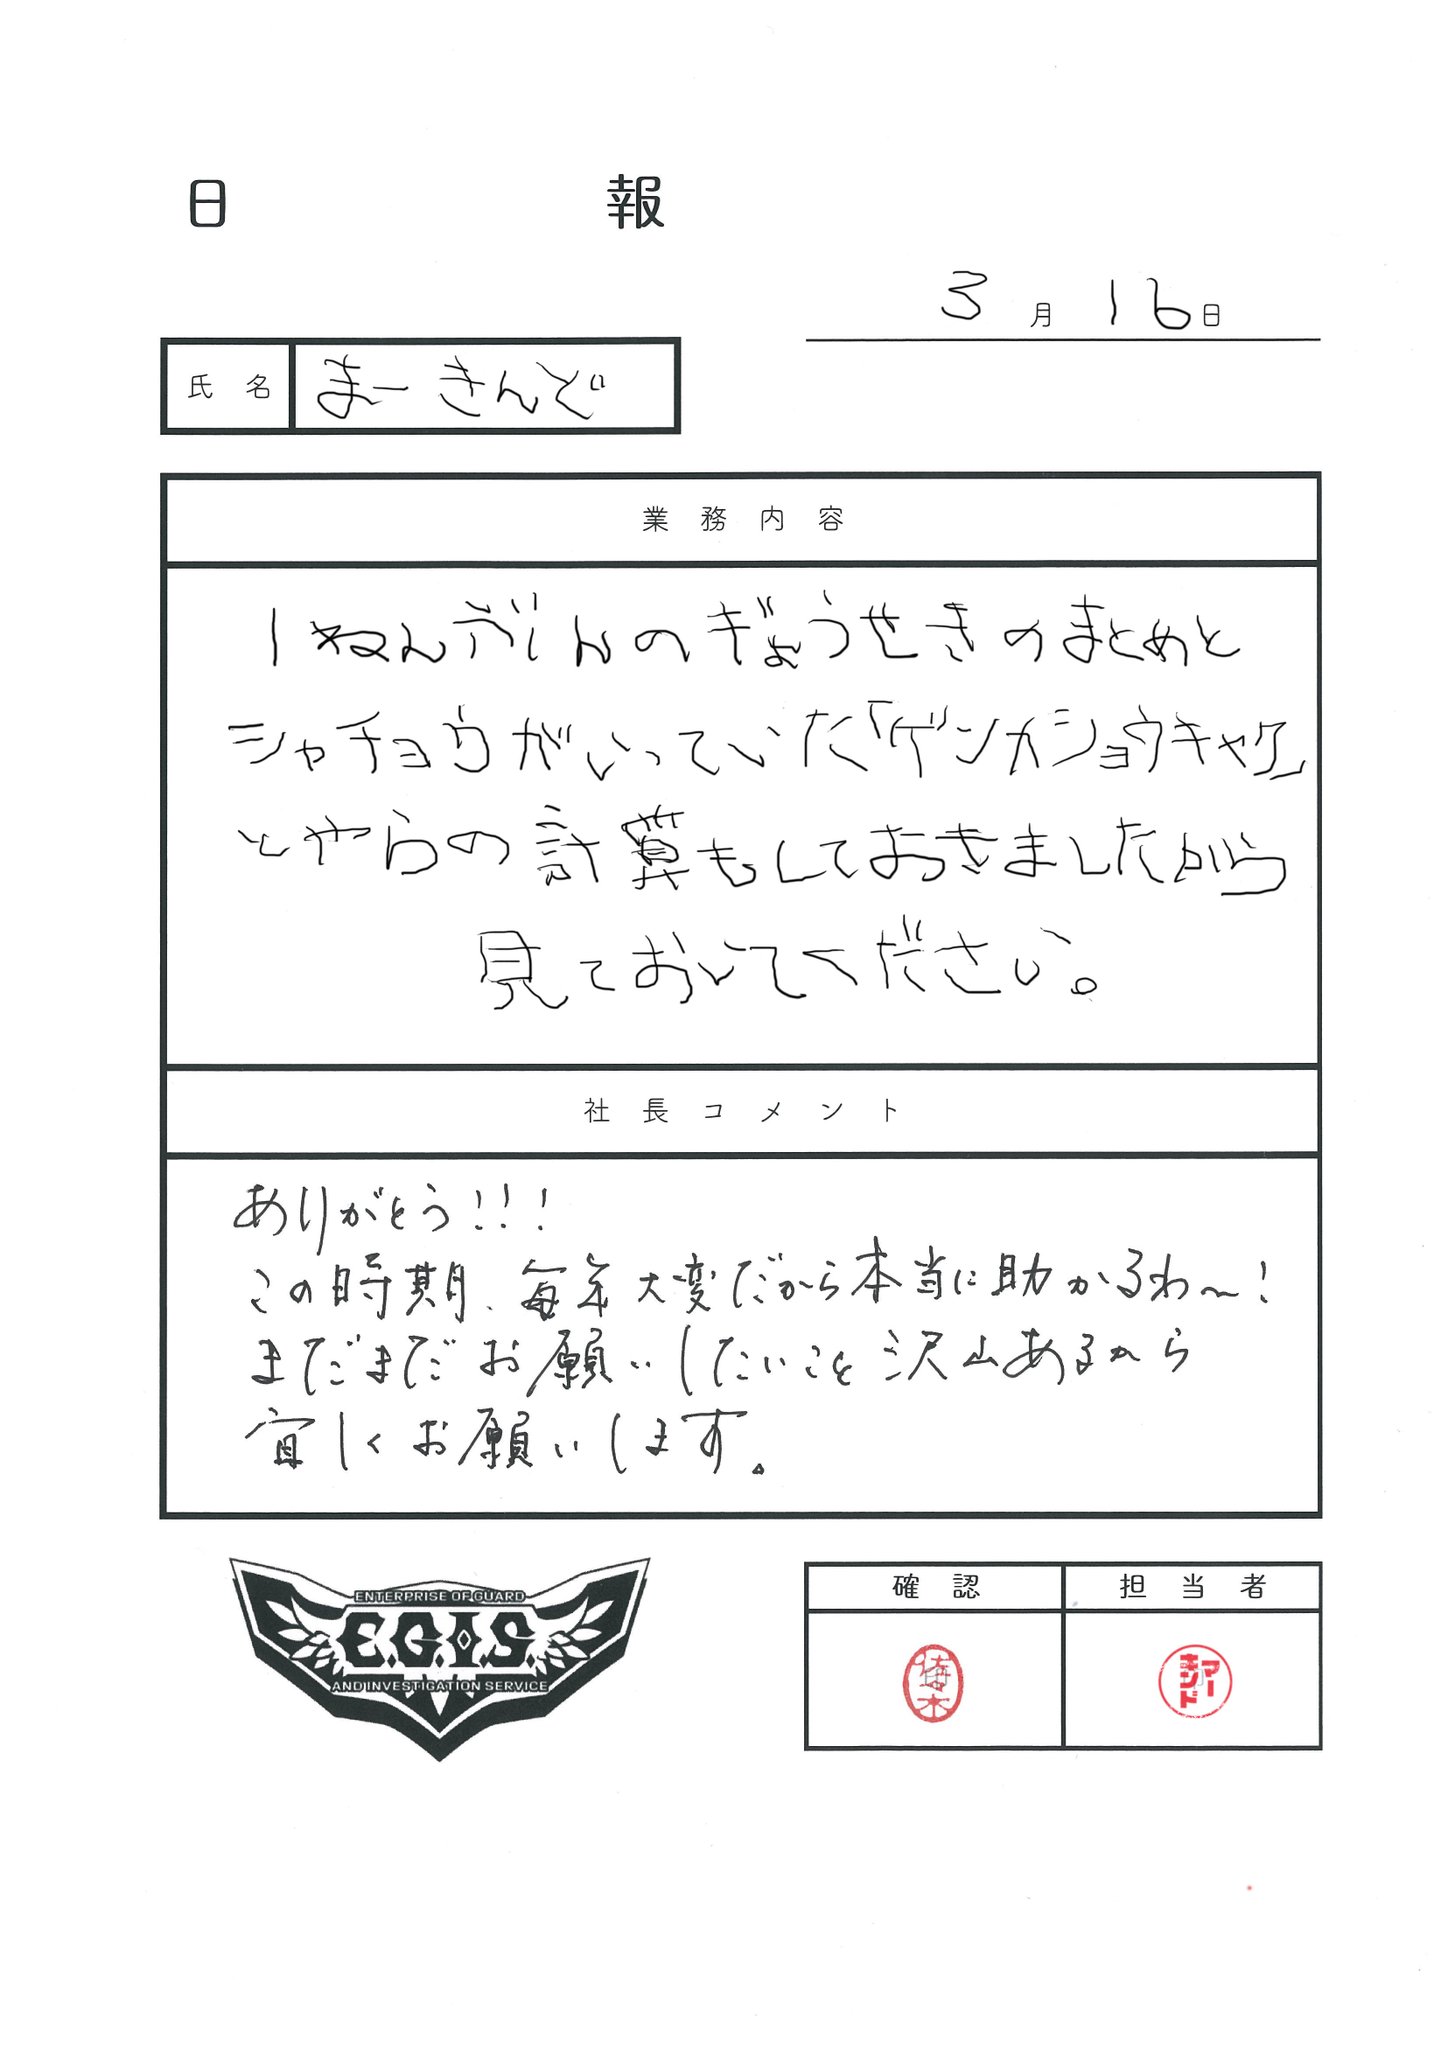 日報
3月16日
氏名 まーきんど
業務内容
1ねんかんのぎょうせきのまとめと
シャチョウがいっていた「ゲンカショウキャク」
とやらの計算もしておきましたから
見ておいてください。
社長コメント
ありがとう!!!
この時期、毎年大変だから本当に助かるわ〜!
まだまだお願いしたいこと沢山あるから
宜しくお願いします。
ENTERPRISE OF GUARD
E.G.I.S.
AND INVESTIGATION SERVICE
確認 担当者
マーキンド